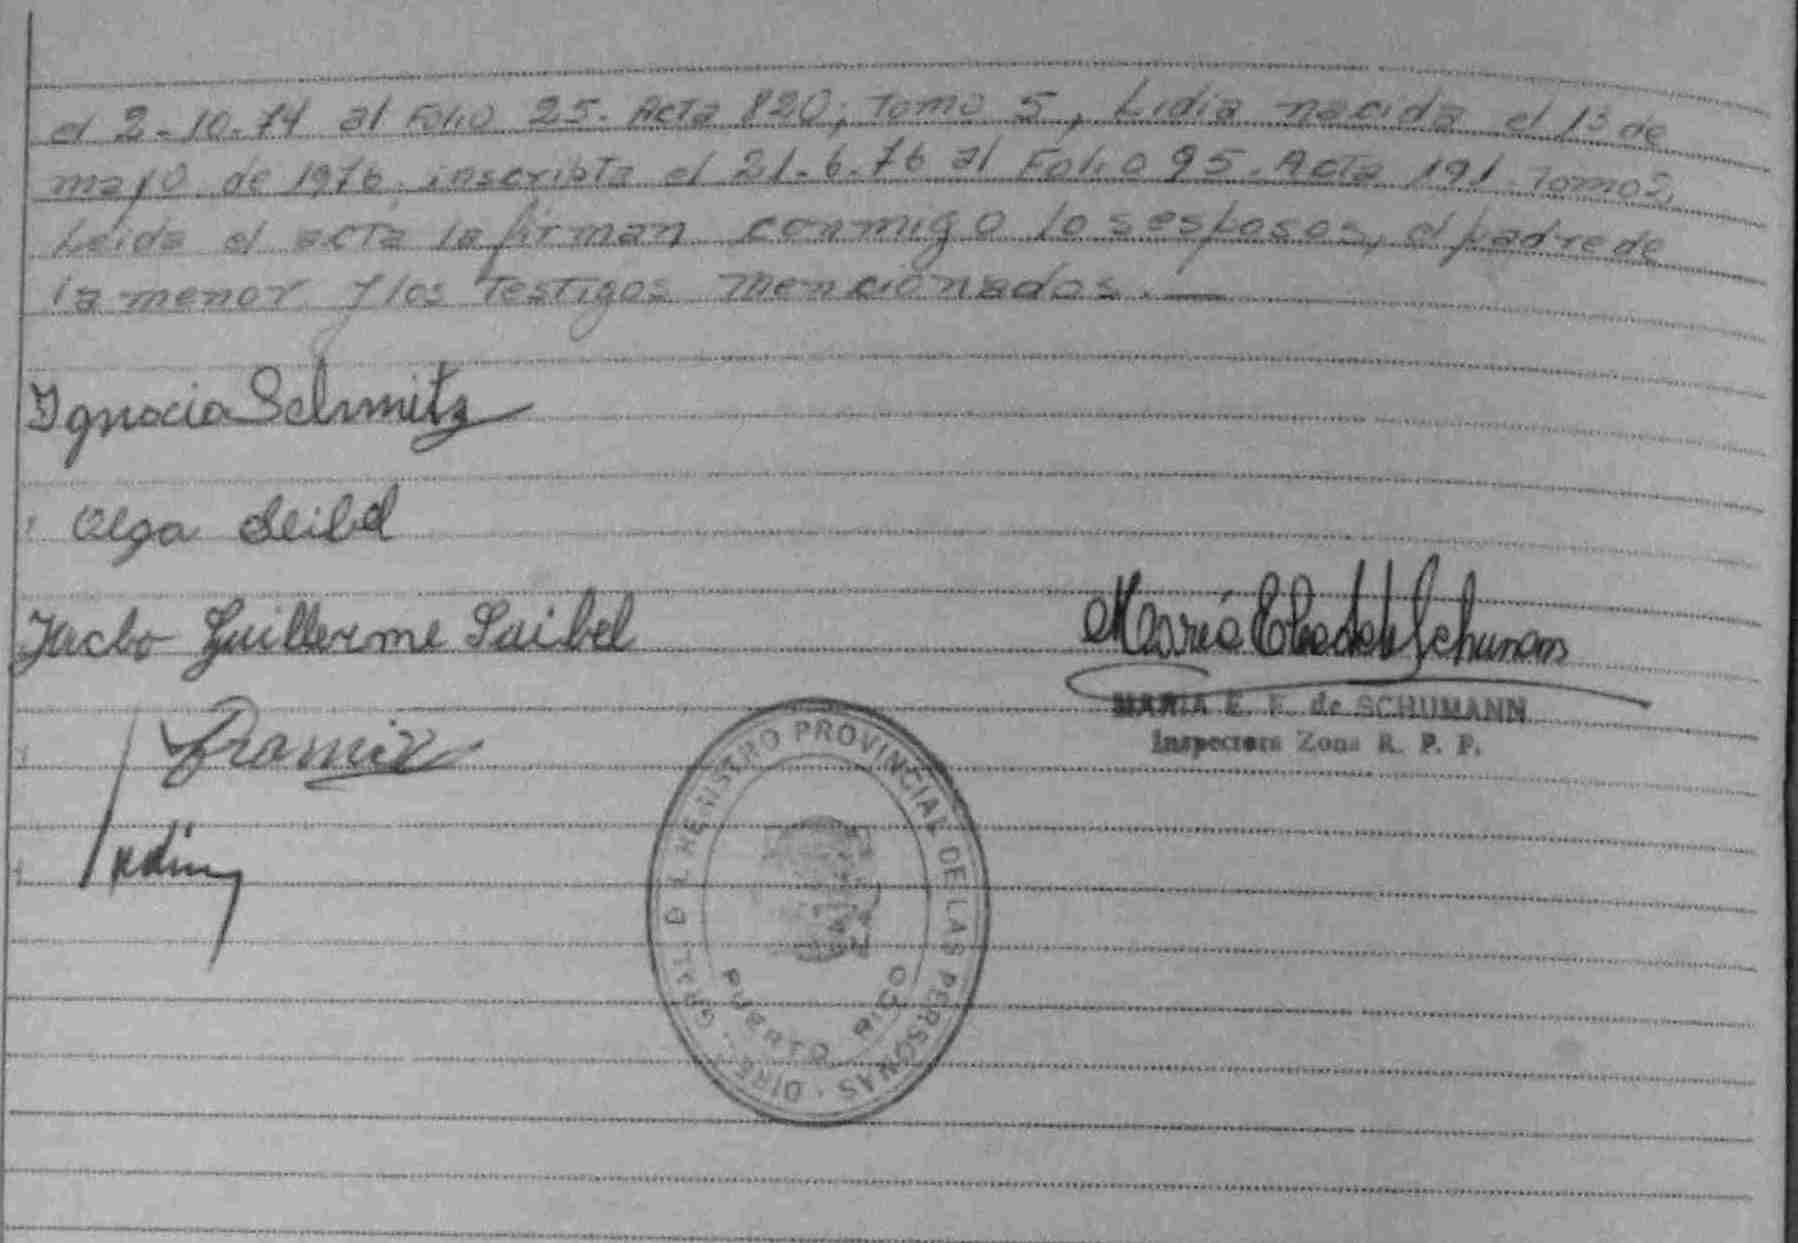 el 2-10-74 al Folio 25. Acta 820; Tomo 5, Lidia nacida el 13 de
mayo de 1976, inscripta el 21.6.76 al Folio 95. Acta 191. Tomo 2,
Leida el acta la firman conmigo los esposos, el padre de
la menor y los Testigos mencionados. —
Ignacio Schmitz
Olga Seibel
Jacbo Guillerme Saibel
María E de Schuman
MARIA E. F. de SCHUMANN
Inspectora Zona R. P. P.
DIREC. GRAL. D L REGISTRO PROVINCIAL DE LAS PERSONAS
PUERTO RICO